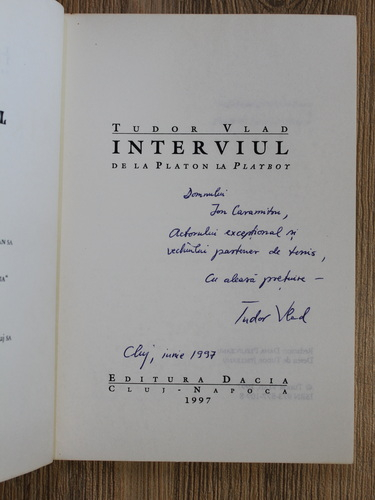 TUDOR VLAD
INTERVIUL
DE LA PLATON LA PLAYBOY
Domnului
Ion Caramitru,
actorului excepțional și
vechiului partener de tenis,
Cu aleasă prețuire –
Tudor Vlad
Cluj, iunie 1997
EDITURA DACIA
CLUJ-NAPOCA
1997